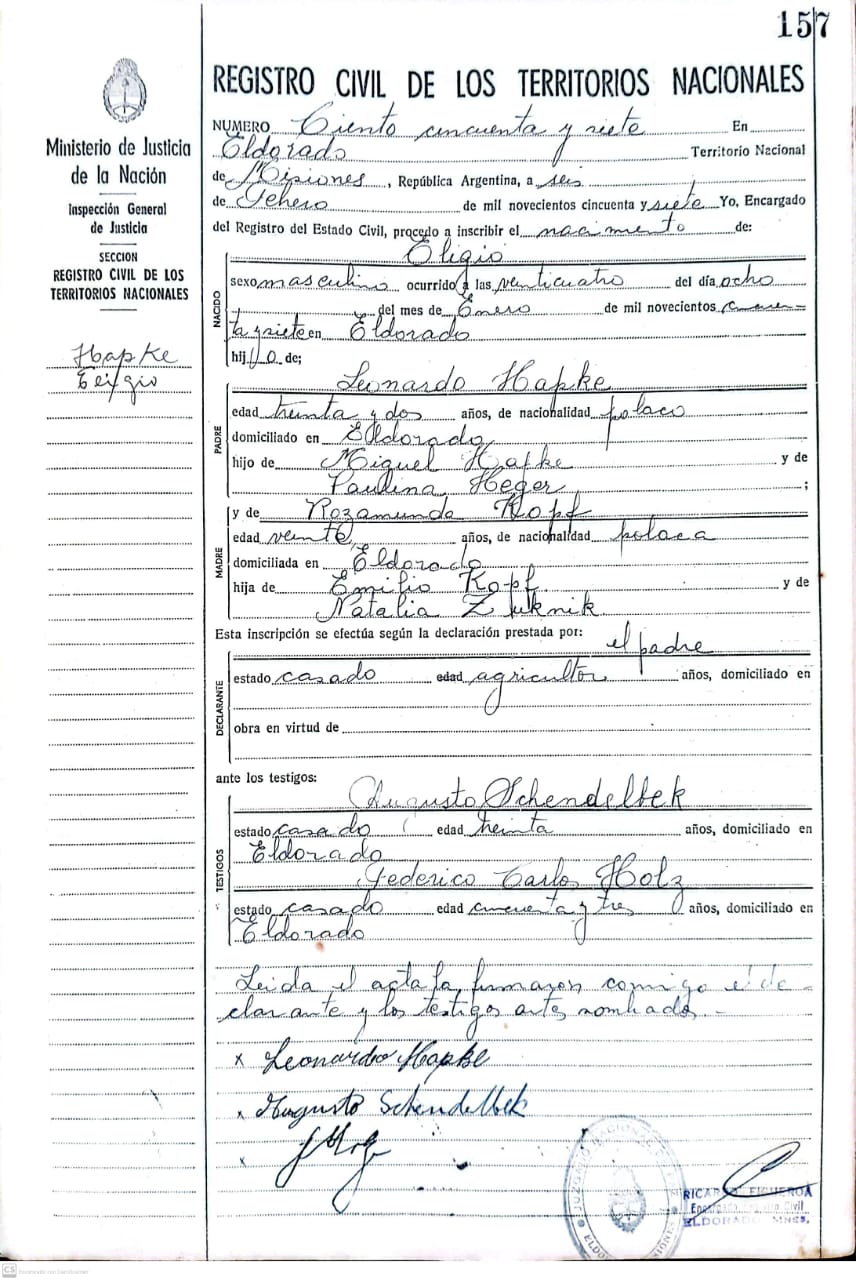 157
Ministerio de Justicia
de la Nación
Inspección General
de Justicia
SECCION
REGISTRO CIVIL DE LOS
TERRITORIOS NACIONALES
Hapke
Eligio
REGISTRO CIVIL DE LOS TERRITORIOS NACIONALES
NUMERO Ciento cincuenta y siete En
Eldorado Territorio Nacional
de Misiones, República Argentina, a seis
de Febrero de mil novecientos cincuenta y siete Yo, Encargado
del Registro del Estado Civil, procedo a inscribir el nacimiento de:
NACIDO
Eligio
sexo masculino ocurrido a las venticuatro del día ocho
del mes de Enero de mil novecientos cincuen-
ta y siete en Eldorado
hijo de;
PADRE
Leonardo Hapke
edad treinta y dos años, de nacionalidad polaco
domiciliado en Eldorado
hijo de Miguel Hapke y de
Paulina Heger ;
MADRE
y de Rozamunda Kopf
edad veinte años, de nacionalidad polaca
domiciliada en Eldorado
hija de Emilio Kopf y de
Natalia Zuknik
Esta inscripción se efectúa según la declaración prestada por: el padre
DECLARANTE
estado casado edad agricultor años, domiciliado en
obra en virtud de
ante los testigos:
TESTIGOS
Augusto Schendelbek
estado casado edad treinta años, domiciliado en
Eldorado
Federico Carlos Holz
estado casado edad cincuenta y tres años, domiciliado en
Eldorado
Leida el acta la firmaron comigo el de-
clarante y los testigos antes nombrados.-
x Leonardo Hapke
x Augusto Schendelbek
x
RICARDO FIGUEROA
Encargado Registro Civil
ELDORADO MNES.
CS